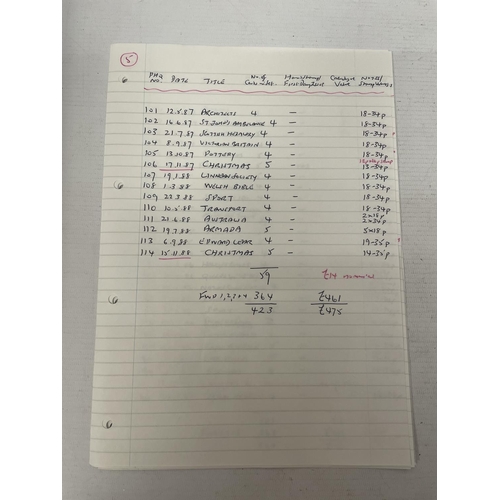 5
PHQ No DATE TITLE No of Cards in set Hand Stamp/ First Day Cover Catalogue Value Notes/
101 12.5.87 ARCHITECTS 4 — 18-34p
102 16.6.87 ST JOHNS AMBULANCE 4 — 18-34p
103 21.7.87 SCOTTISH HERALDRY 4 — 18-34p
104 8.9.87 VICTORIAN BRITAIN 4 — 18-34p
105 13.10.87 POTTERY 4 — 18-34p
106 17.11.87 CHRISTMAS 5 — 13-34p
107 19.1.88 LINNEAN SOCIETY 4 — 18-34p
108 1.3.88 WELSH BIBLE 4 — 18-34p
109 22.3.88 SPORT 4 — 18-34p
110 10.5.88 TRANSPORT 4 — 18-34p
111 21.6.88 AUSTRALIA 4 — 2x18p 2x34p
112 19.7.88 ARMADA 5 — 5x18p
113 6.9.88 EDWARD LEAR 4 — 19-35p
114 15.11.88 CHRISTMAS 5 — 14-35p
59 £14 nominal
Fwd 1,2,3+4 364 £461
423 £475